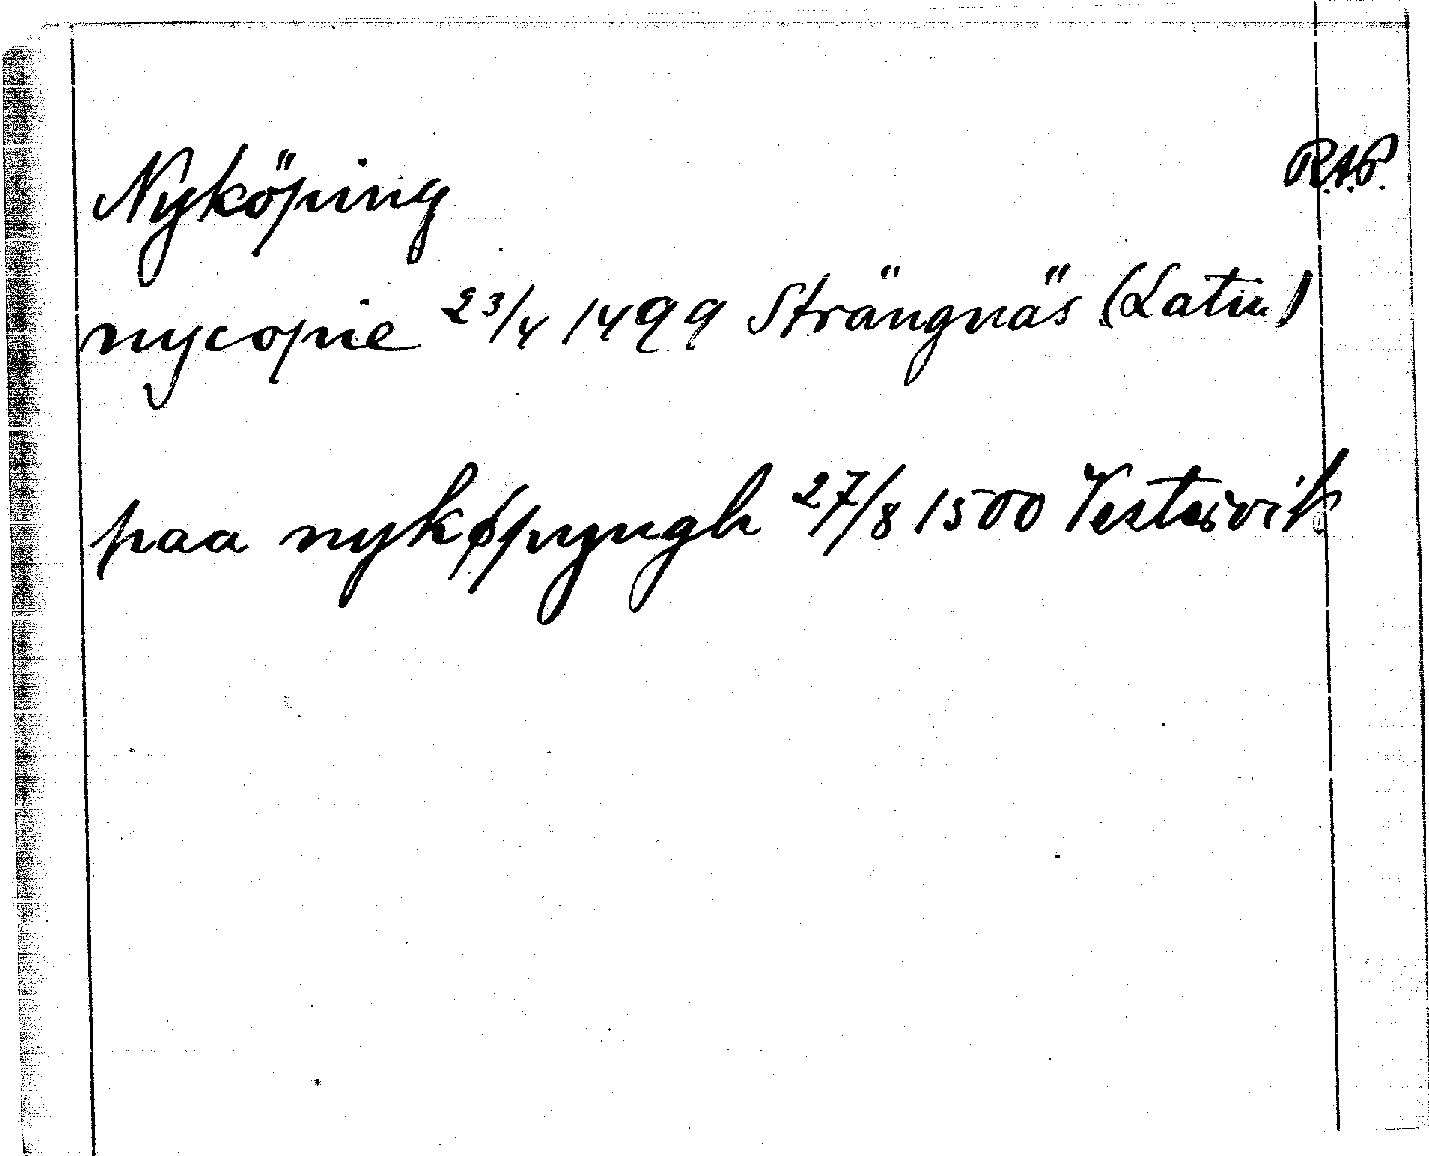 Nyköping R.A.P.
nycopie 23/4 1499 Strängnäs (Latin)
paa nykøpyngh 27/8 1500 Vestervik